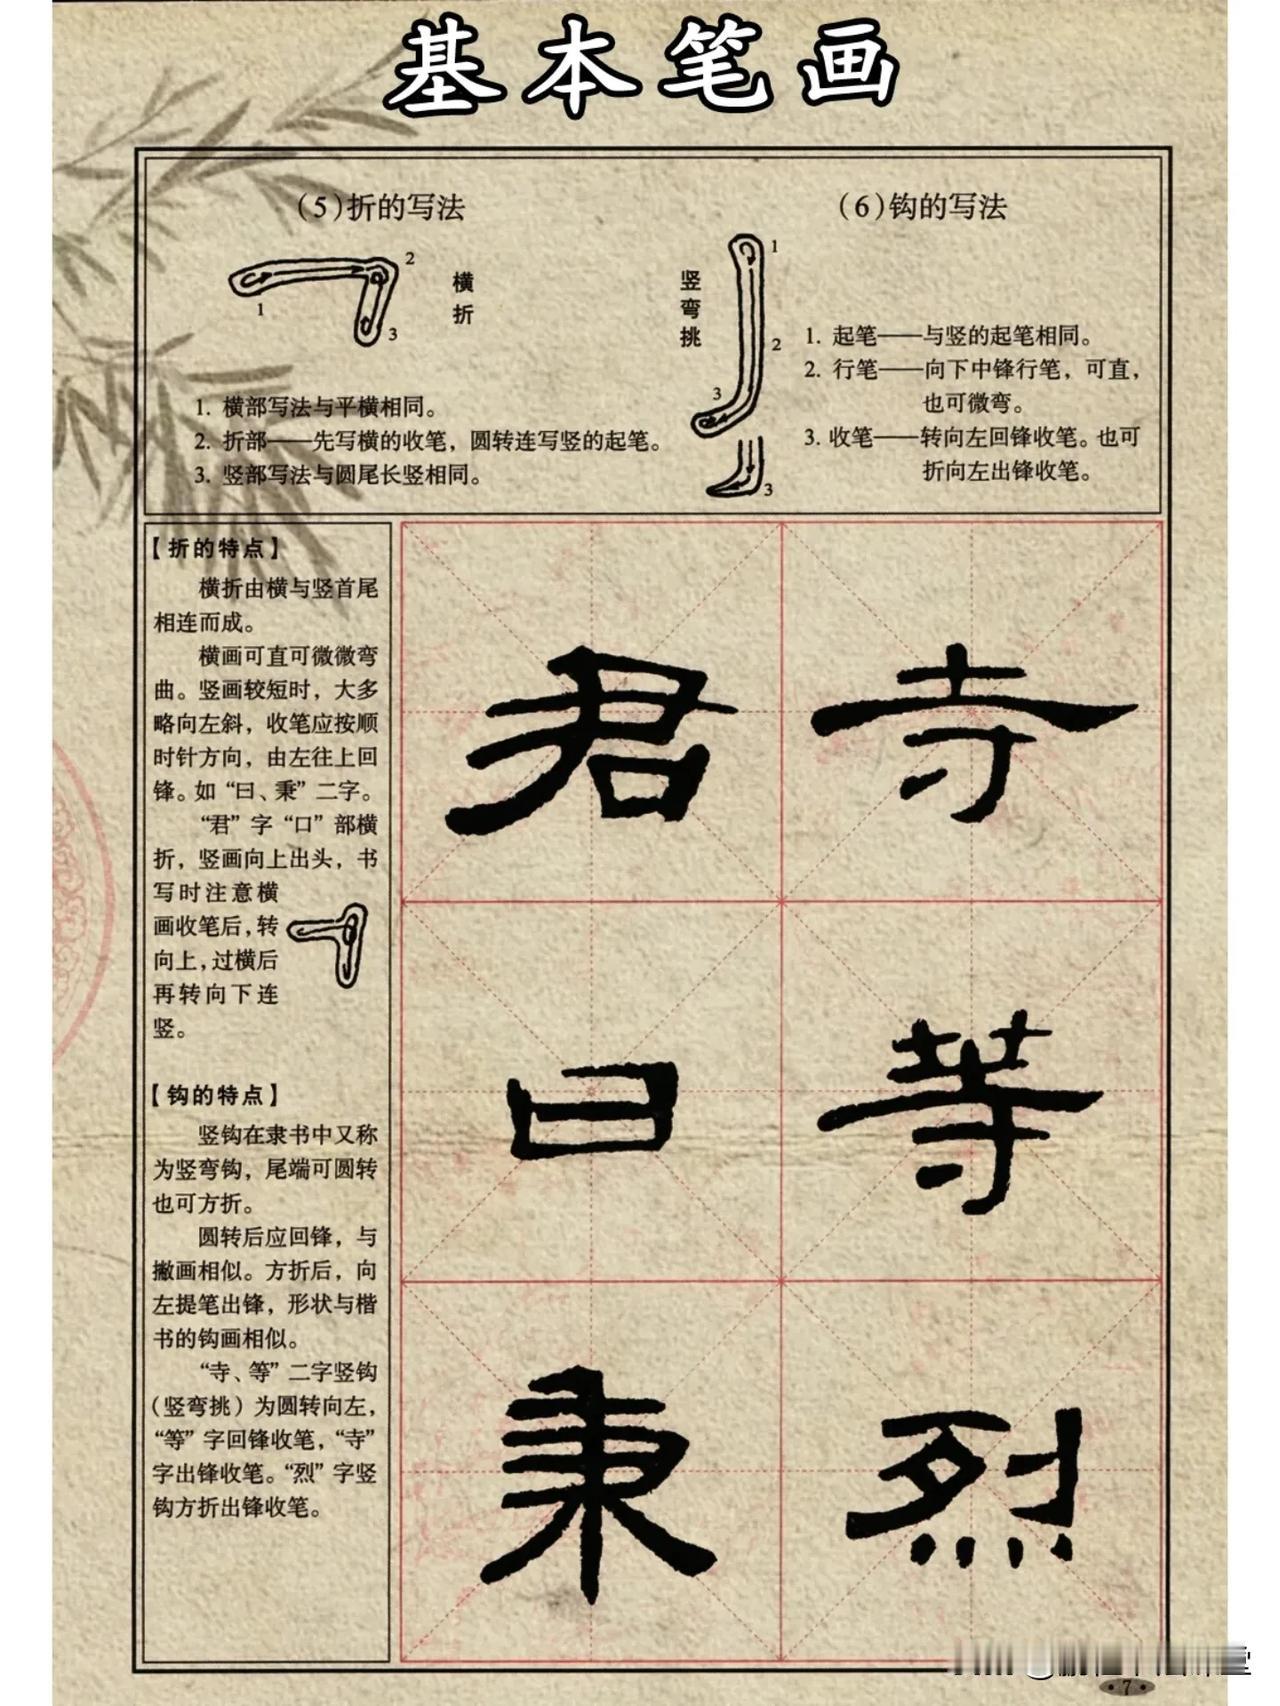 基本笔画
(5)折的写法
1
2
3
横折
1. 横部写法与平横相同。
2. 折部——先写横的收笔，圆转连写竖的起笔。
3. 竖部写法与圆尾长竖相同。
(6)钩的写法
竖弯挑
1
2
3
3
1. 起笔——与竖的起笔相同。
2. 行笔——向下中锋行笔，可直，
也可微弯。
3. 收笔——转向左回锋收笔。也可
折向左出锋收笔。
【折的特点】
横折由横与竖首尾
相连而成。
横画可直可微微弯
曲。竖画较短时，大多
略向左斜，收笔应按顺
时针方向，由左往上回
锋。如“曰、秉”二字。
“君”字“口”部横
折，竖画向上出头，书
写时注意横
画收笔后，转
向上，过横后
再转向下连
竖。
【钩的特点】
竖钩在隶书中又称
为竖弯钩，尾端可圆转
也可方折。
圆转后应回锋，与
撇画相似。方折后，向
左提笔出锋，形状与楷
书的钩画相似。
“寺、等”二字竖钩
（竖弯挑）为圆转向左，
“等”字回锋收笔，“寺”
字出锋收笔。“烈”字竖
钩方折出锋收笔。
君 寺
曰 等
秉 烈
·7·